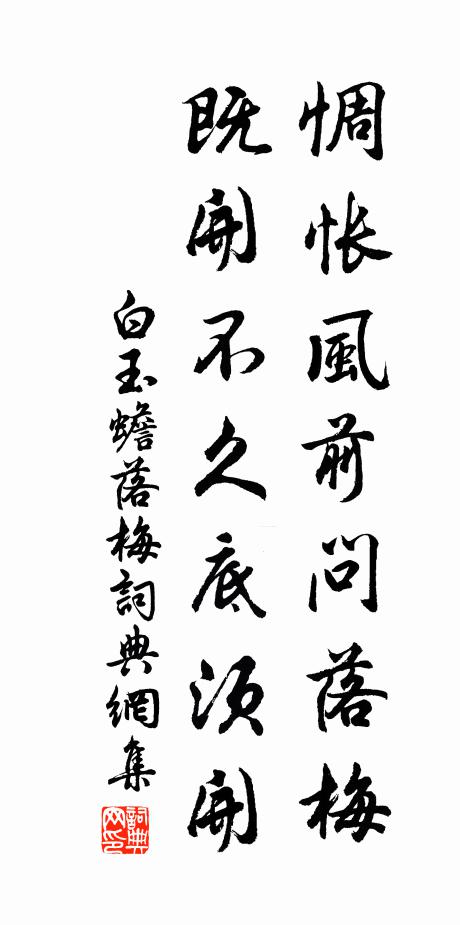 惆悵風前問落梅
既開不久底須開
白玉蟾落梅詞典網集
詞典網印